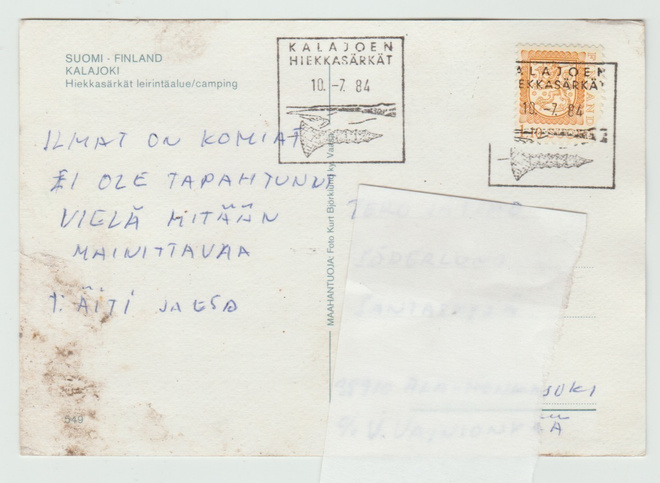 SUOMI - FINLAND
KALAJOKI
Hiekkasärkät leirintäalue/camping
KALAJOEN
HIEKKASÄRKÄT
10.-7. 84
KALAJOEN
HIEKKASÄRKÄT
10.-7. 84
ILMAT ON KOMIAT
EI OLE TAPAHTUNUT
VIELÄ MITÄÄN
MAINITTAVAA
T. ÄITI JA ESA
MAAHANTUOJA: Foto Kurt Björklund
SÖDERLUND
549